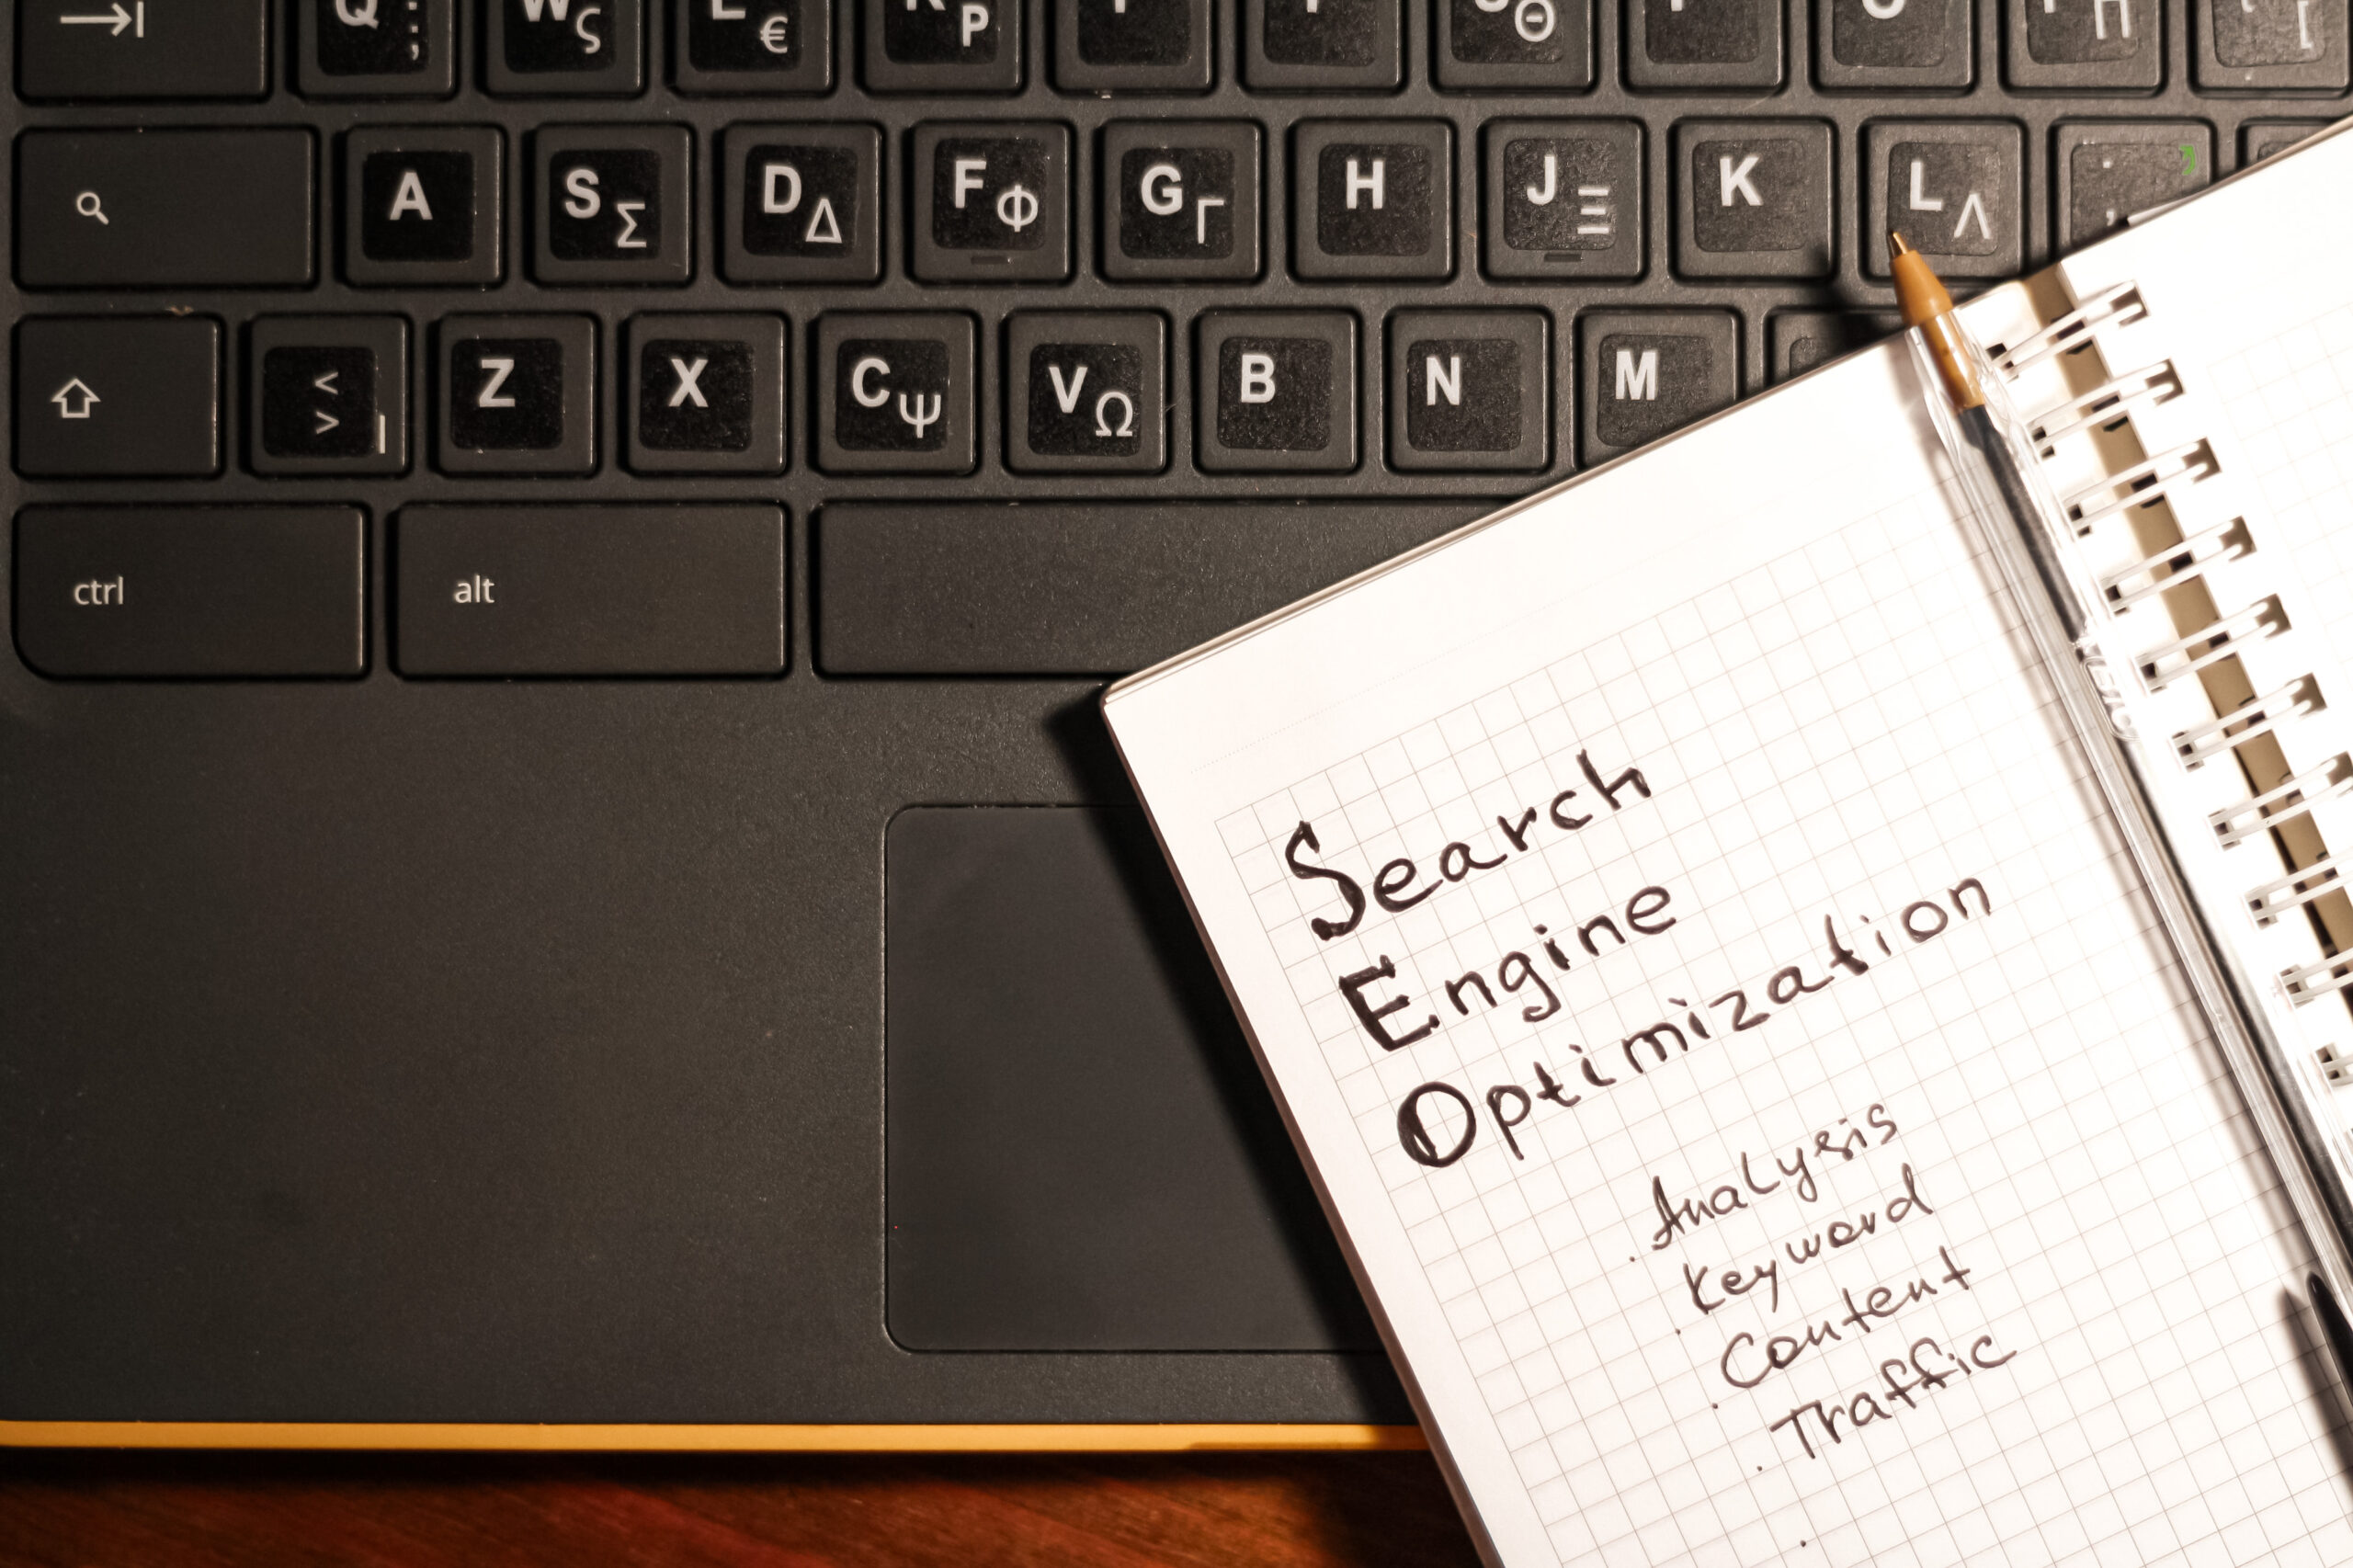 Q ; :
W ς
€
P
Θ
A
S Σ
D Δ
F Φ
G Γ
H
J Ξ
K
L Λ
< >
Z
X
C Ψ
V Ω
B
N
M
ctrl
alt
Search
Engine
Optimization
. Analysis
. Keyword
. Content
. Traffic
.